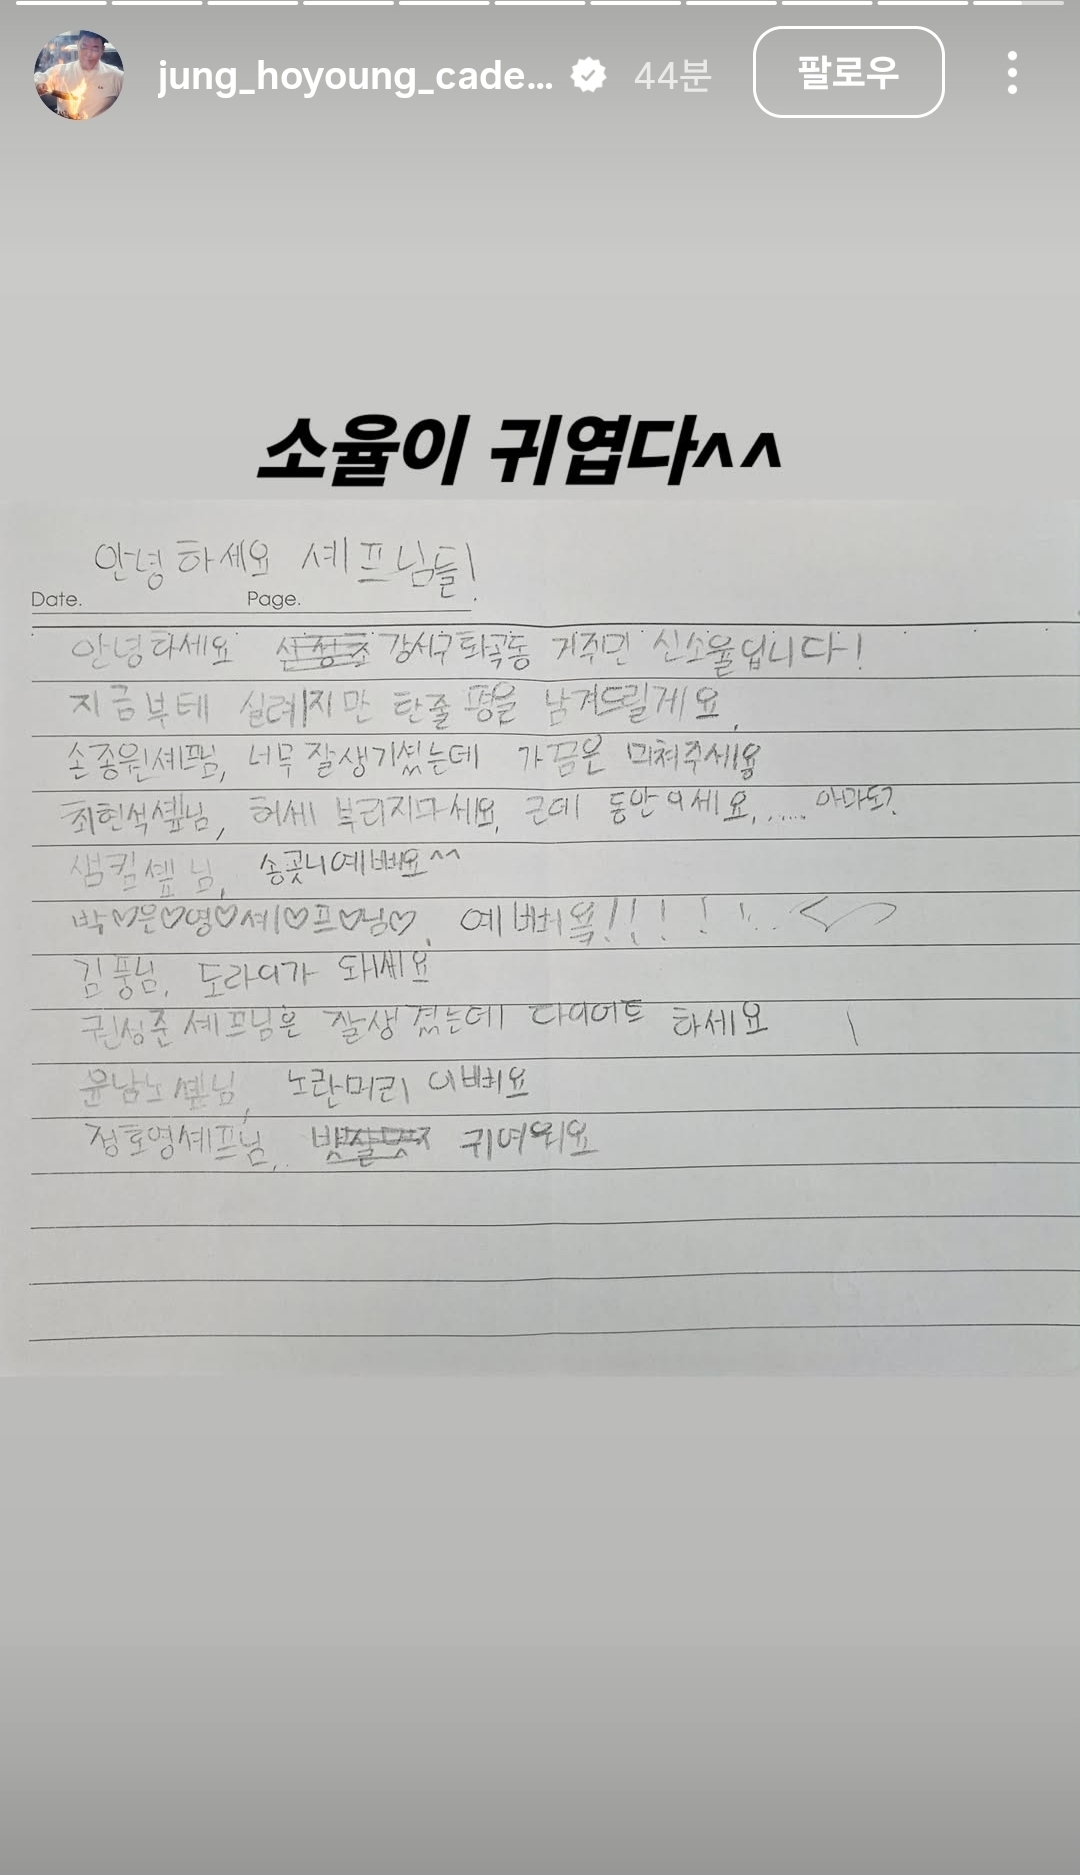 jung_hoyoung_cade... 44분 팔로우
소율이 귀엽다^^
안녕하세요 셰프님들!
Date. Page.
안녕하세요 강서구 화곡동 거주민 신소율입니다!
지금부테 실례지만 한줄평을 남겨드릴게요.
손종원셰프님, 너무 잘생기셨는데 가끔은 미쳐주세용
최현석셒님, 허세 부리지마세요. 근데 동안이세요....... 아마도?
샘킴셒님, 송곳니예뻐요^^
박♡은♡영♡셰♡프♡님♡. 예뻐욬!!!!!..
김풍님. 도라이가 돼세요
권성준셰프님은 잘생겼는데 다이어트 하세요
윤남노셒님, 노란머리 이뻐요
정호영셰프님, 귀여워요